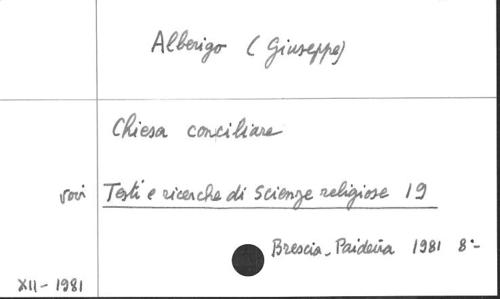 Alberigo (Giuseppe)
Chiesa conciliare
voir Testi e ricerche di Scienze religiose 19
Brescia - Paideia 1981 8:-
XII - 1981